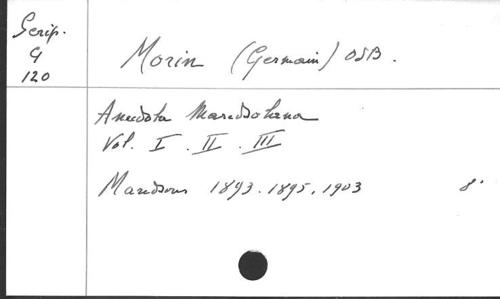 Scrip.
G
120
Morin (Germain) OSB.
Anecdota Maredsolana
Vol. I. II. III
Maredsous 1893. 1895. 1903 8°